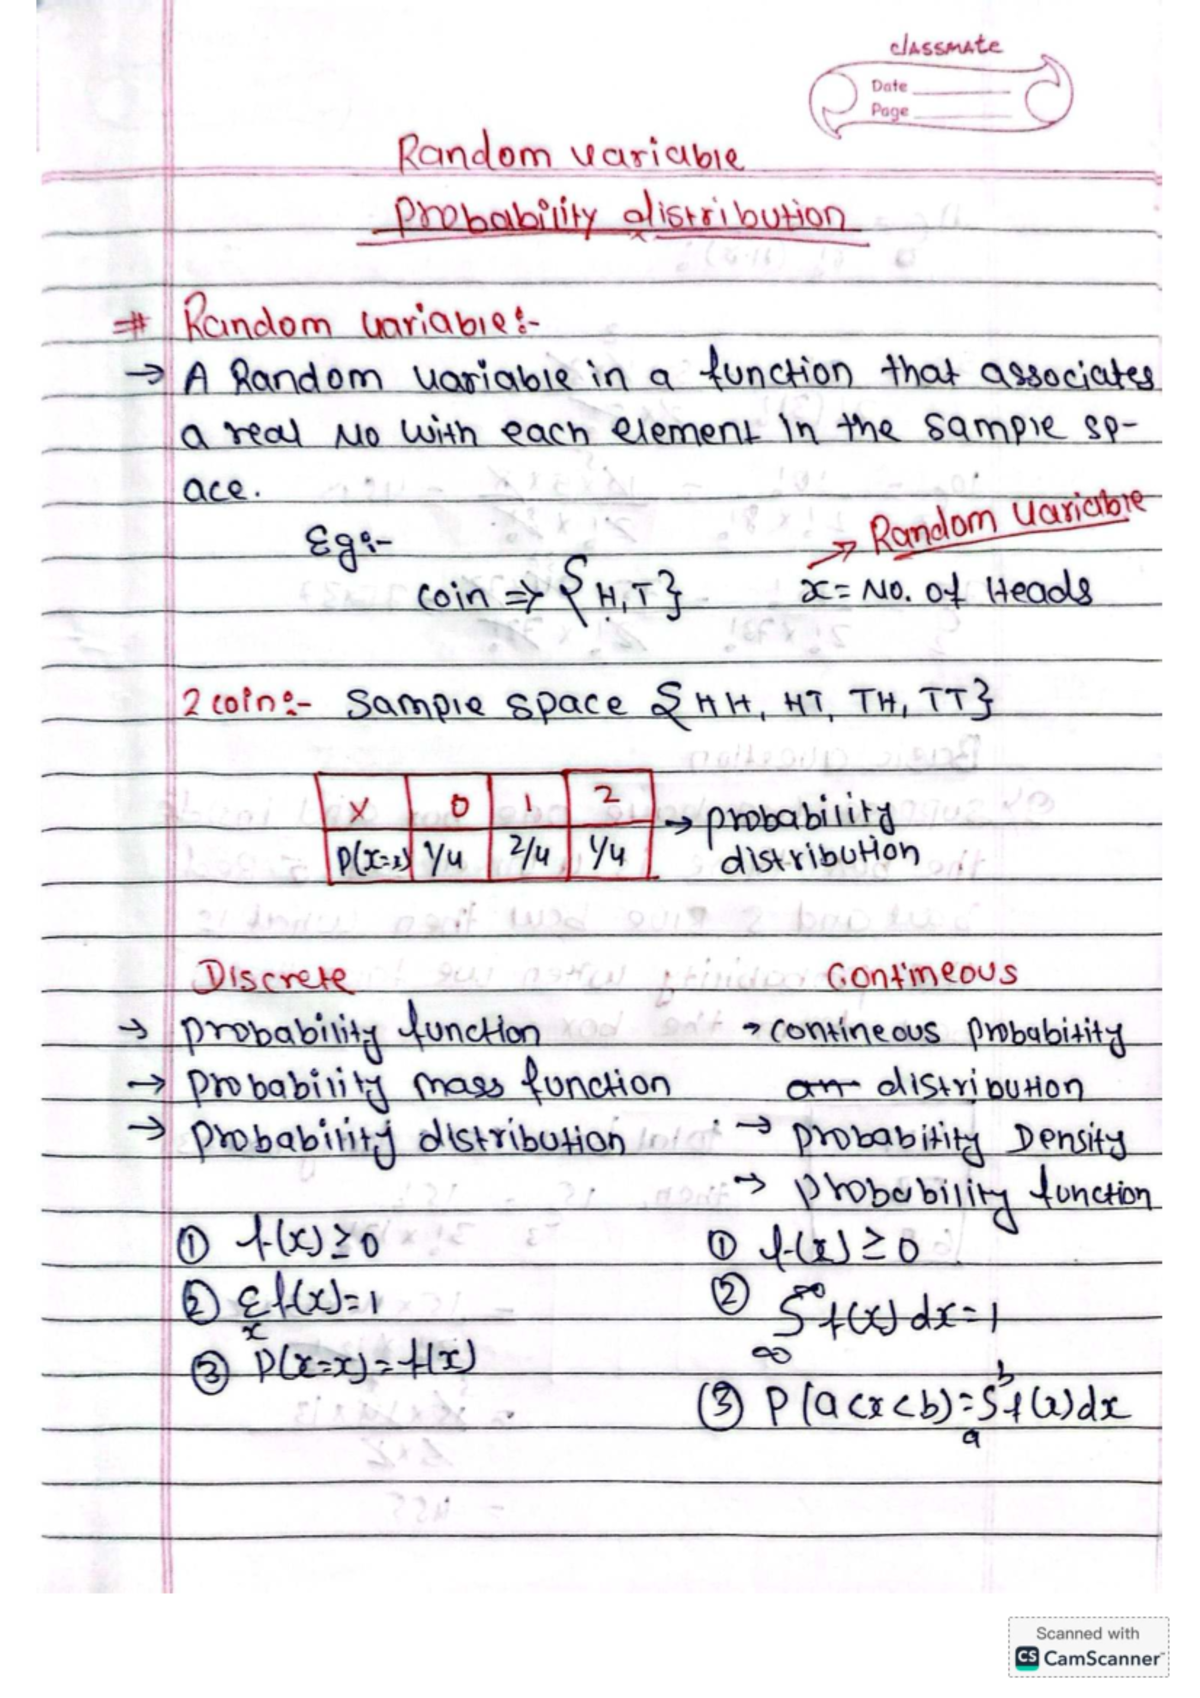 classmate
Date
Page
Random variable
Probability distribution
# Random variable:-
→ A Random variable in a function that associates
a real No with each element in the sample sp-
ace.
Eg:-
→ Random variable
coin ⇒ {H,T}
x = No. of Heads
2 coin:- Sample space {HH, HT, TH, TT}
X 0 1 2
P(X=x) 1/4 2/4 1/4
→ probability
distribution
Discrete
→ probability function
→ probability mass function
→ probability distribution
① f(x) ≥ 0
② Σf(x)=1
x
③ P(x=x)=f(x)
Contineous
→ contineous probability
distribution
→ probability Density
→ probability function
① f(x) ≥ 0
② ∞∫∞ f(x) dx=1
③ P(a<x<b)=∫ᵇₐ f(x)dx
Scanned with
CS CamScanner